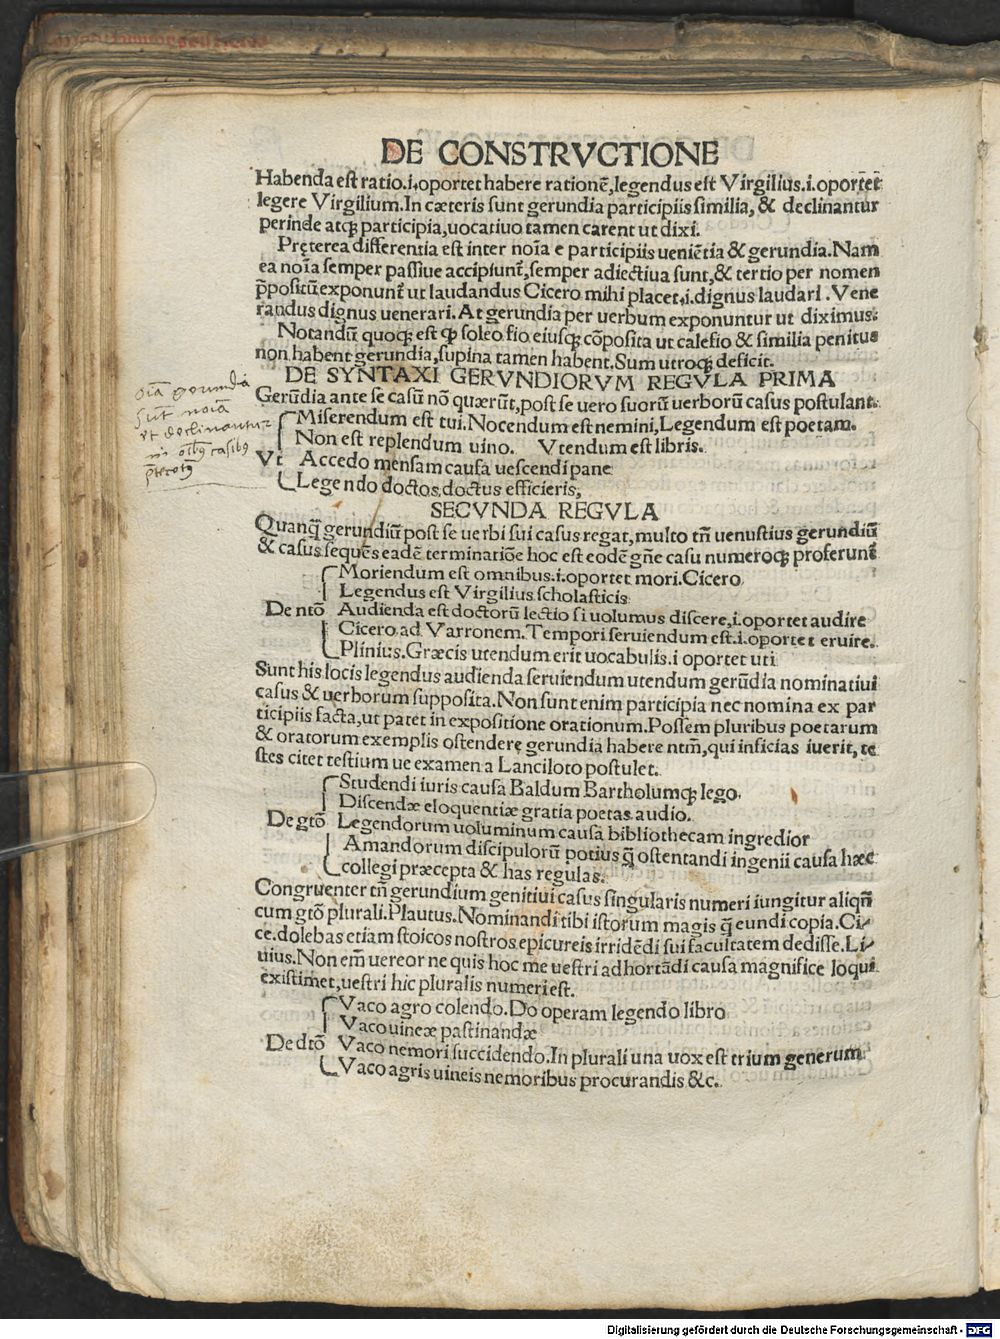 DE CONSTRVCTIONE
Habenda est ratio.i.oportet habere rationē,legendus est Virgilius.i.oportet
legere Virgilium.In cæteris sunt gerundia participiis similia, & declinantur
perinde atqꝫ participia,uocatiuo tamen carent ut dixi.
Pręterea differentia est inter noīa e participiis ueniētia & gerundia.Nam
ea noīa semper passiue accipiunt̃,semper adiectiua sunt,& tertio per nomen
p̄positū exponunt̃ ut laudandus Cicero mihi placet,i.dignus laudari .Vene
randus dignus uenerari. At gerundia per uerbum exponuntur ut diximus.
Notandū quoqꝫ est ꝙ soleo fio eiusqꝫ cōposita ut calefio & similia penitus
non habent gerundia,supina tamen habent.Sum utroqꝫ deficit.
DE SYNTAXI GERVNDIORVM REGVLA PRIMA
Gerūdia ante se casū nō quærūt,post se uero suorū uerborū casus postulant.
Miserendum est tui.Nocendum est nemini,Legendum est poetam.
Non est replendum uino. Vtendum est libris.
Vt Accedo mensam causa uescendi pane
Legendo doctos,doctus efficieris,
oīa gerundia
sūt noīa
et declinantur
casibꝰ
SECVNDA REGVLA
Quanq̄ gerundiū post se uerbi sui casus regat,multo tñ uenustius gerundiū
& casus sequēs eadē terminatiōe hoc est eodē gñe casu numeroqꝫ proferunt̃
Moriendum est omnibus.i.oportet mori.Cicero
Legendus est Virgilius scholasticis
De ntō Audienda est doctorū lectio si uolumus discere,i.oportet audire
Cicero ad Varronem.Tempori seruiendum est.i.oportet eruire.
Plinius.Græcis utendum erit uocabulis.i oportet uti
Sunt his locis legendus audienda seruiendum utendum gerūdia nominatiui
casus & uerborum supposita.Non sunt enim participia nec nomina ex par
ticipiis facta,ut patet in expositione orationum.Possem pluribus poetarum
& oratorum exemplis ostenderę gerundia habere ntm̄,qui inficias iuerit, te
stes citet testium ue examen a Lanciloto postulet.
Studendi iuris causa Baldum Bartholumqꝫ lego.
Discendæ eloquentiæ gratia poetas audio.
De gtō Legendorum uoluminum causa bibliothecam ingredior
Amandorum discipulorū potius q̄ ostentandi ingenii causa hæc
collegi præcepta & has regulas.
Congruenter tñ gerundium genitiui casus singularis numeri iungitur aliqñ
cum gtō plurali.Plautus.Nominandi tibi istorum magis q̄ eundi copia.Ci⸗
ce.dolebas etiam stoicos nostros epicureis irridēdi sui facultatem dedisse.Li⸗
uius.Non em̄ uereor ne quis hoc me uestri adhortādi causa magnifice loqui
existimet,uestri hic pluralis numeri est.
Vaco agro colendo.Do operam legendo libro
Vaco uineæ pastinandæ
De dtō Vaco nemori succidendo.In plurali una uox est trium generum
Vaco agris uineis nemoribus procurandis &c.
Digitalisierung gefördert durch die Deutsche Forschungsgemeinschaft - DFG